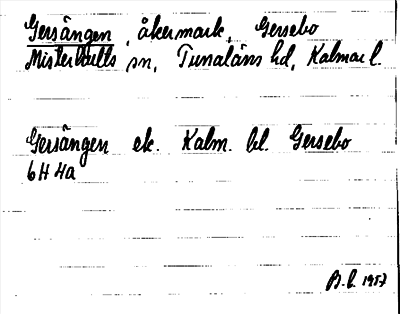 Gersängen, åkermark, Gersebo
Misterhults sn, Tunaläns hd, Kalmar l.
Gersängen ek. Kalm. bl. Gersebo
6H 4a
B.L. 1957